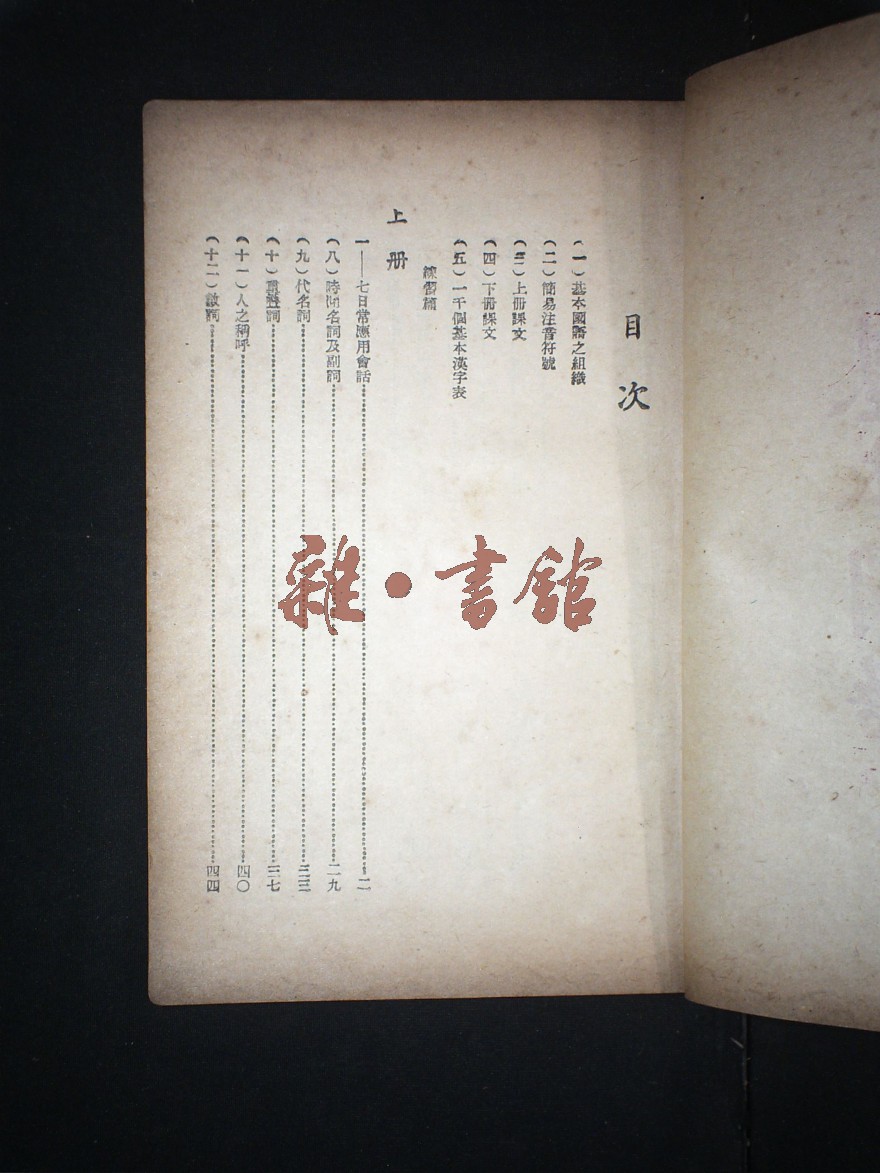 目次
(一)基本國語之組織
(二)簡易注音符號
(三)上冊課文
(四)下冊課文
(五)一千個基本漢字表
練習篇
上冊
一——七日常應用會話……二
(八)時間名詞及副詞……二九
(九)代名詞……三三
(十)重疊詞……三七
(十一)人之稱呼……四〇
(十二)數詞……四四
雜•書館